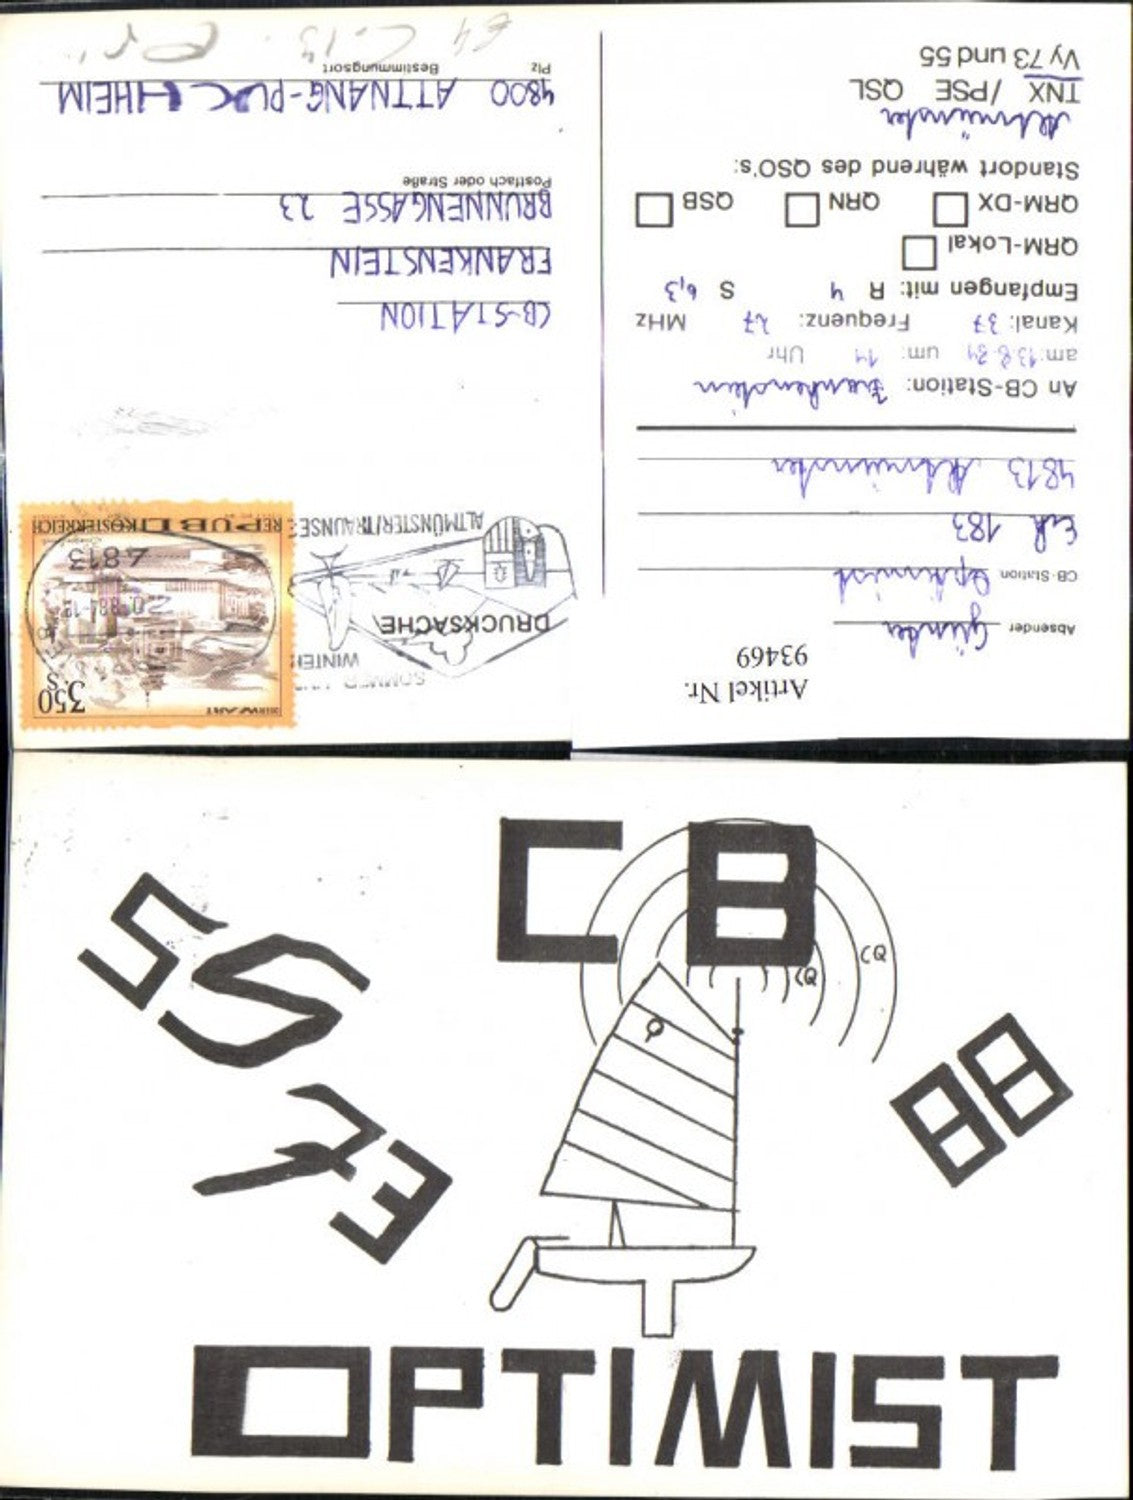 Artikel Nr.
93469
Absender Günter
CB-Station Optimist
Eck 183
4813 Altmünster
An CB-Station: Frankenstein
am: 13.8.84 um: 11 Uhr
Kanal: 37 Frequenz: 27 MHz
Empfangen mit: R 4 S 6,3
QRM-Lokal
QRM-DX QRN QSB
Standort während des QSO's:
Altmünster
TNX /PSE QSL
Vy 73 und 55
SOMMER
WINTER
DRUCKSACHE
ALTMÜNSTER/TRAUNSEE
3.50 S
4813
REPUBLIK ÖSTERREICH
CB-STATION
FRANKENSTEIN
BRUNNENGASSE 23
Postfach oder Straße
4800 ATTNANG-PUCHHEIM
Plz Bestimmungsort
CB
CQ
CQ
55
73
88
OPTIMIST